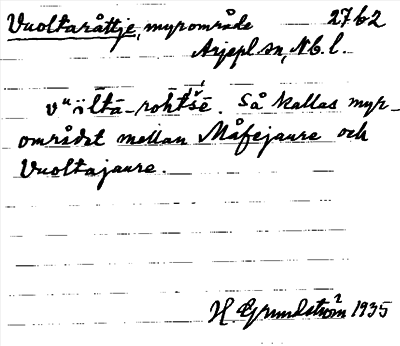 Vuoltaråttje, myrområde 27b2
Arjepl. sn, Nb. l.
vuȯltā-rohtšē. Så kallas myr-
området mellan Måfejaure och
Vuoltajaure.
H. Grundström 1935